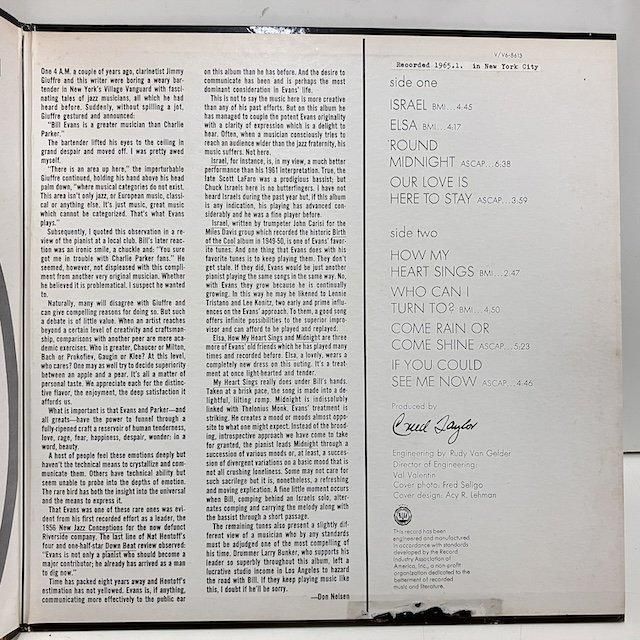 One 4 A.M. a couple of years ago, clarinetist Jimmy
Giuffre and this writer were boring a weary bar-
tender in New York's Village Vanguard with fasci-
nating tales of jazz musicians, all which he had
heard before. Suddenly, without spilling a jot,
Giuffre gestured and announced:
"Bill Evans is a greater musician than Charlie
Parker."
The bartender lifted his eyes to the ceiling in
grand despair and moved off. I was pretty awed
myself.
"There is an area up here," the imperturbable
Giuffre continued, holding his hand above his head
palm down, "where musical categories do not exist.
This area isn't only jazz, or European music, classi-
cal or anything else. It's just music, great music
which cannot be categorized. That's what Evans
plays."
Subsequently, I quoted this observation in a re-
view of the pianist at a local club. Bill's later reac-
tion was an ironic smile, a chuckle and: "You sure
got me in trouble with Charlie Parker fans." He
seemed, however, not displeased with this compli-
ment from another very original musician. Whether
he believed it is problematical. I suspect he wanted
to.
Naturally, many will disagree with Giuffre and
can give compelling reasons for doing so. But such
a debate is of little value. When an artist reaches
beyond a certain level of creativity and craftsman-
ship, comparisons with another peer are mere aca-
demic exercises. Who is greater, Chaucer or Milton,
Bach or Prokofiev, Gaugin or Klee? At this level,
who cares? One may as well try to decide superiority
between an apple and a pear. It's all a matter of
personal taste. We appreciate each for the distinc-
tive flavor, the enjoyment, the deep satisfaction it
affords us.
What is important is that Evans and Parker—and
all greats—have the power to funnel through a
fully-ripened craft a reservoir of human tenderness,
love, rage, fear, happiness, despair, wonder: in a
word, beauty.
A host of people feel these emotions deeply but
haven't the technical means to crystallize and com-
municate them. Others have technical ability but
seem unable to probe into the depths of emotion.
The rare bird has both the insight into the universal
and the means to express it.
That Evans was one of these rare ones was evi-
dent from his first recorded effort as a leader, the
1956 New Jazz Conceptions for the now defunct
Riverside company. The last line of Nat Hentoff's
four and one-half-star Down Beat review observed:
"Evans is not only a pianist who should become a
major contributor; he already has arrived as a man
to dig now."
Time has packed eight years away and Hentoff's
estimation has not yellowed. Evans is, if anything,
communicating more effectively to the public ear
on this album than he has before. And the desire to
communicate has been and is perhaps the most
dominant consideration in Evans' life.
This is not to say the music here is more creative
than any of his past efforts. But on this album he
has managed to couple the potent Evans originality
with a clarity of expression which is a delight to
hear. Often, when a musician consciously tries to
reach an audience wider than the jazz fraternity, his
music suffers. Not here.
Israel, for instance, is, in my view, a much better
performance than his 1961 interpretation. True, the
late Scott LaFaro was a prodigious bassist; but
Chuck Israels here is no butterfingers. I have not
heard Israels during the past year but, if this album
is any indication, his playing has advanced con-
siderably and he was a fine player before.
Israel, written by trumpeter John Carisi for the
Miles Davis group which recorded the historic Birth
of the Cool album in 1949-50, is one of Evans' favor-
ite tunes. And one thing that Evans does with his
favorite tunes is to keep playing them. They don't
get stale. If they did, Evans would be just another
pianist playing the same songs in the same way. No,
with Evans they grow because he is continually
growing. In this way he may be likened to Lennie
Tristano and Lee Konitz, two early and prime influ-
ences on the Evans' approach. To them, a good song
offers infinite possibilities to the superior impro-
visor and can afford to be played and replayed.
Elsa, How My Heart Sings and Midnight are three
more of Evans' old friends which he has played many
times and recorded before. Elsa, a lovely, wears a
completely new dress on this outing. It's a treat-
ment at once light hearted and tender.
My Heart Sings really does under Bill's hands.
Taken at a brisk pace, the song is made into a de-
lightful, lilting romp. Midnight is indissolubly
linked with Thelonius Monk. Evans' treatment is
striking. He creates a mood or moods almost oppo-
site to what one might expect. Instead of the brood-
ing, introspective approach we have come to take
for granted, the pianist leads Midnight through a
succession of various moods or, at least, a succes-
sion of divergent variations on a basic mood that is
not all crushing loneliness. Some may not care for
such sacrilege but it is, nonetheless, a refreshing
and moving explication. A fine little moment occurs
when Bill, comping behind an Israels solo, alter-
nates comping and carrying the melody along with
the bassist through a short passage.
The remaining tunes also present a slightly dif-
ferent view of a musician who by any standards
must be adjudged one of the most compelling of
his time. Drummer Larry Bunker, who supports his
leader so superbly throughout this album, left a
lucrative studio income in Los Angeles to hazard
the road with Bill. If they keep playing music like
this, I doubt if he'll be sorry.
—Don Nelsen
V/V6-8613
Recorded 1965.1. in New York City
side one
ISRAEL BMI...4:45
ELSA BMI...4:17
ROUND
MIDNIGHT ASCAP...6:38
OUR LOVE IS
HERE TO STAY ASCAP...3:59
side two
HOW MY
HEART SINGS BMI...2:47
WHO CAN I
TURN TO? BMI...4:50
COME RAIN OR
COME SHINE ASCAP...5:23
IF YOU COULD
SEE ME NOW ASCAP...4:46
Produced by
Creed Taylor
Engineering by Rudy Van Gelder
Director of Engineering:
Val Valentin
Cover photo: Fred Seligo
Cover design: Acy R. Lehman
This record has been
engineered and manufactured
in accordance with standards
developed by the Record
Industry Association of
America, Inc., a non-profit
organization dedicated to the
betterment of recorded
music and literature.